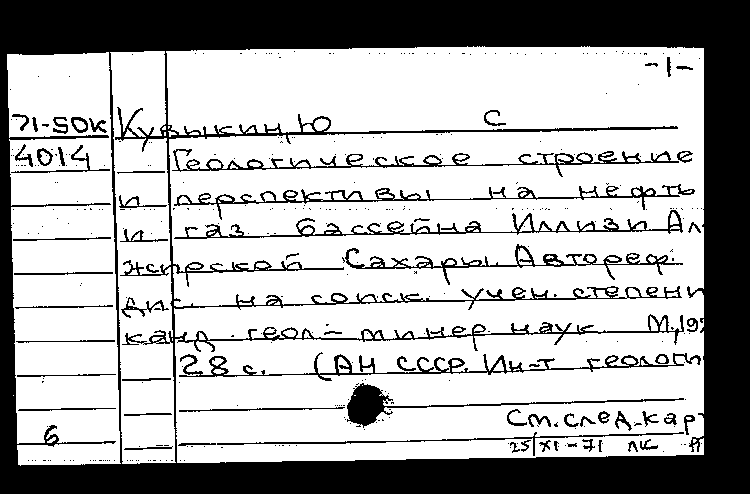 -1-
71-50К Кувыкин, Ю С
4014 Геологическое строение
и перспективы на нефть
и газ бассейна Иллизи Ал
жирской Сахары. Автореф.
дис. на соиск. учен. степени
канд. геол-минер наук М, 19
28 с. (АН СССР. Ин-т геологи
См. след. кар
6 25/XI-71 ЛК